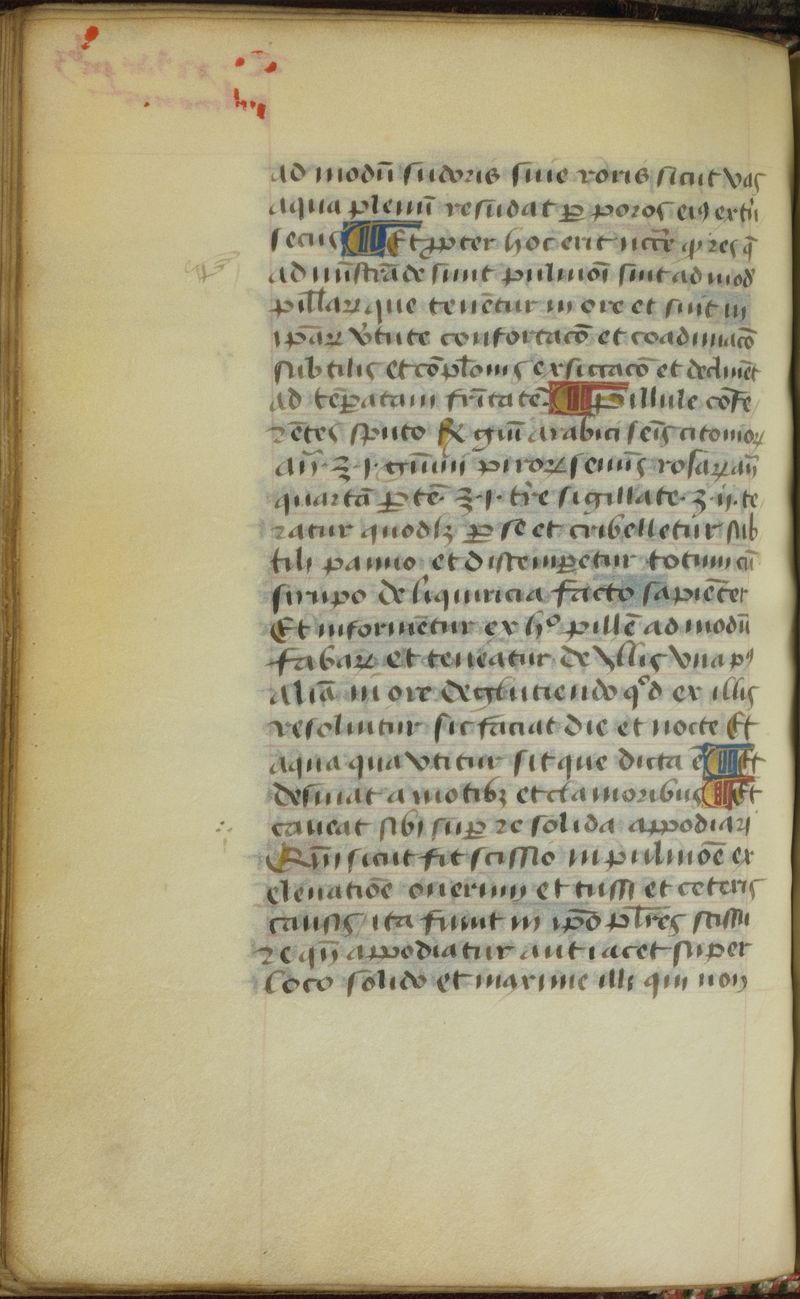 ad modū sudoris siue roris sicut vas
aqua plenū resudat ꝑ poros eiꝰ extri
secus ¶ Et ꝓpter hoc erit nccē ꝙ res q̄
ad mīstrāde sunt pulmoī sint ad mod
pillaꝝ que tenētur in ore et sint in
ipāꝝ v̓tute confortacō et coadunacō
subtilis et cōplōnis exsiccacō et declinēt
ad tēꝑatam frītatē ¶ Pillule cōfe
rētes sputo ℞ gūī arabici seīs citonioꝝ
an̄ ʒ j pinoꝝ semīs rosaꝝ an̄
quartā ꝑtē ʒ j tr̄e sigillate ʒ ij te
ratur quodlꝫ ꝑ se et cribelletur sub
tili panno et distemꝑetur totum cū
sirupo de liquiricia facto sapiēter
Et informētur ex hᵒ pillē ad modū
fabaꝝ et teneatur de yllis vna pꝰ
aliā in ore deglutiendo qᵒd ex illis
resoluitur sic faciat die et nocte Et
aqua qua vtitur sit que dicta ē ¶ Et
desinat a motibꝫ et clamoribus ¶ Et
caueat sibi suꝑ re solida appodiari
Qm̄ sicut fit scissio in pulmōe ex
eleuatiōe onerum et tussi et ceteris
causis ita fiunt in ip̄o pl̄res scissu
re qn̄ appodiatur aut iacet super
loco solido et maxime illi qui non